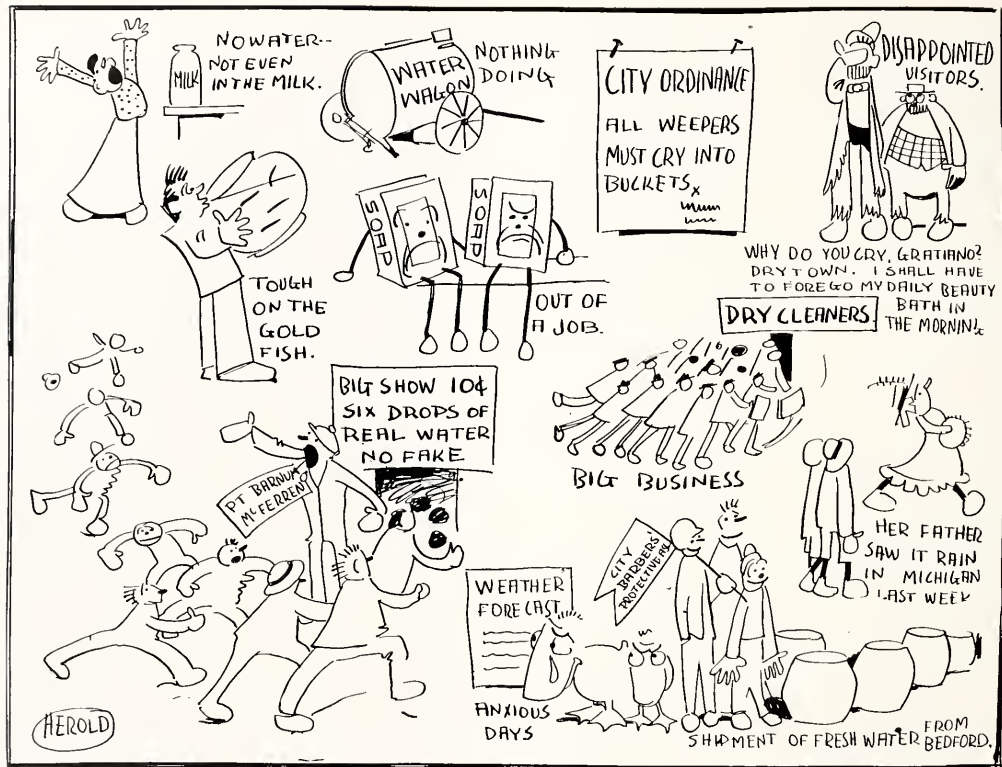 NO WATER--
NOT EVEN
IN THE MILK.
MILK
WATER
WAGON
NOTHING
DOING
CITY ORDINANCE
ALL WEEPERS
MUST CRY INTO
BUCKETS
DISAPPOINTED
VISITORS.
WHY DO YOU CRY, GRATIANO?
DRY TOWN. I SHALL HAVE
TO FOREGO MY DAILY BEAUTY
BATH IN
THE MORNING
TOUGH
ON THE
GOLD
FISH.
SOAP
SOAP
OUT OF
A JOB.
DRY CLEANERS.
BIG BUSINESS
BIG SHOW 10¢
SIX DROPS OF
REAL WATER
NO FAKE
PT BARNUM
McFERREN
HER FATHER
SAW IT RAIN
IN MICHIGAN
LAST WEEK
WEATHER
FORECAST
ANXIOUS
DAYS
CITY
BARBERS
PROTECTIVE
SHIPMENT OF FRESH WATER FROM
BEDFORD.
HEROLD